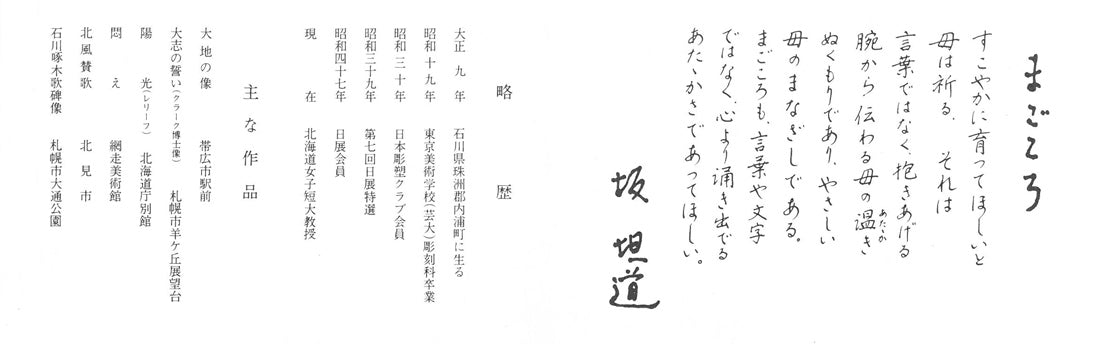 まごころ
すこやかに育ってほしいと
母は祈る。それは
言葉ではなく、抱きあげる
腕から伝わる母の温き
あたたか
ぬくもりであり、やさしい
母のまなざしである。
まごころも、言葉や文字
ではなく、心より涌き出でる
あたゝかさであってほしい。
坂 坦道
略歴
大正九年 石川県珠洲郡内浦町に生る
昭和十九年 東京美術学校(芸大)彫刻科卒業
昭和三十年 日本彫塑クラブ会員
昭和三十九年 第七回日展特選
昭和四十七年 日展会員
現在 北海道女子短大教授
主な作品
大地の像 帯広市駅前
大志の誓い(クラーク博士像) 札幌市羊ケ丘展望台
陽光(レリーフ) 北海道庁別館
悶え 網走美術館
北風賛歌 北見市
石川啄木歌碑像 札幌市大通公園